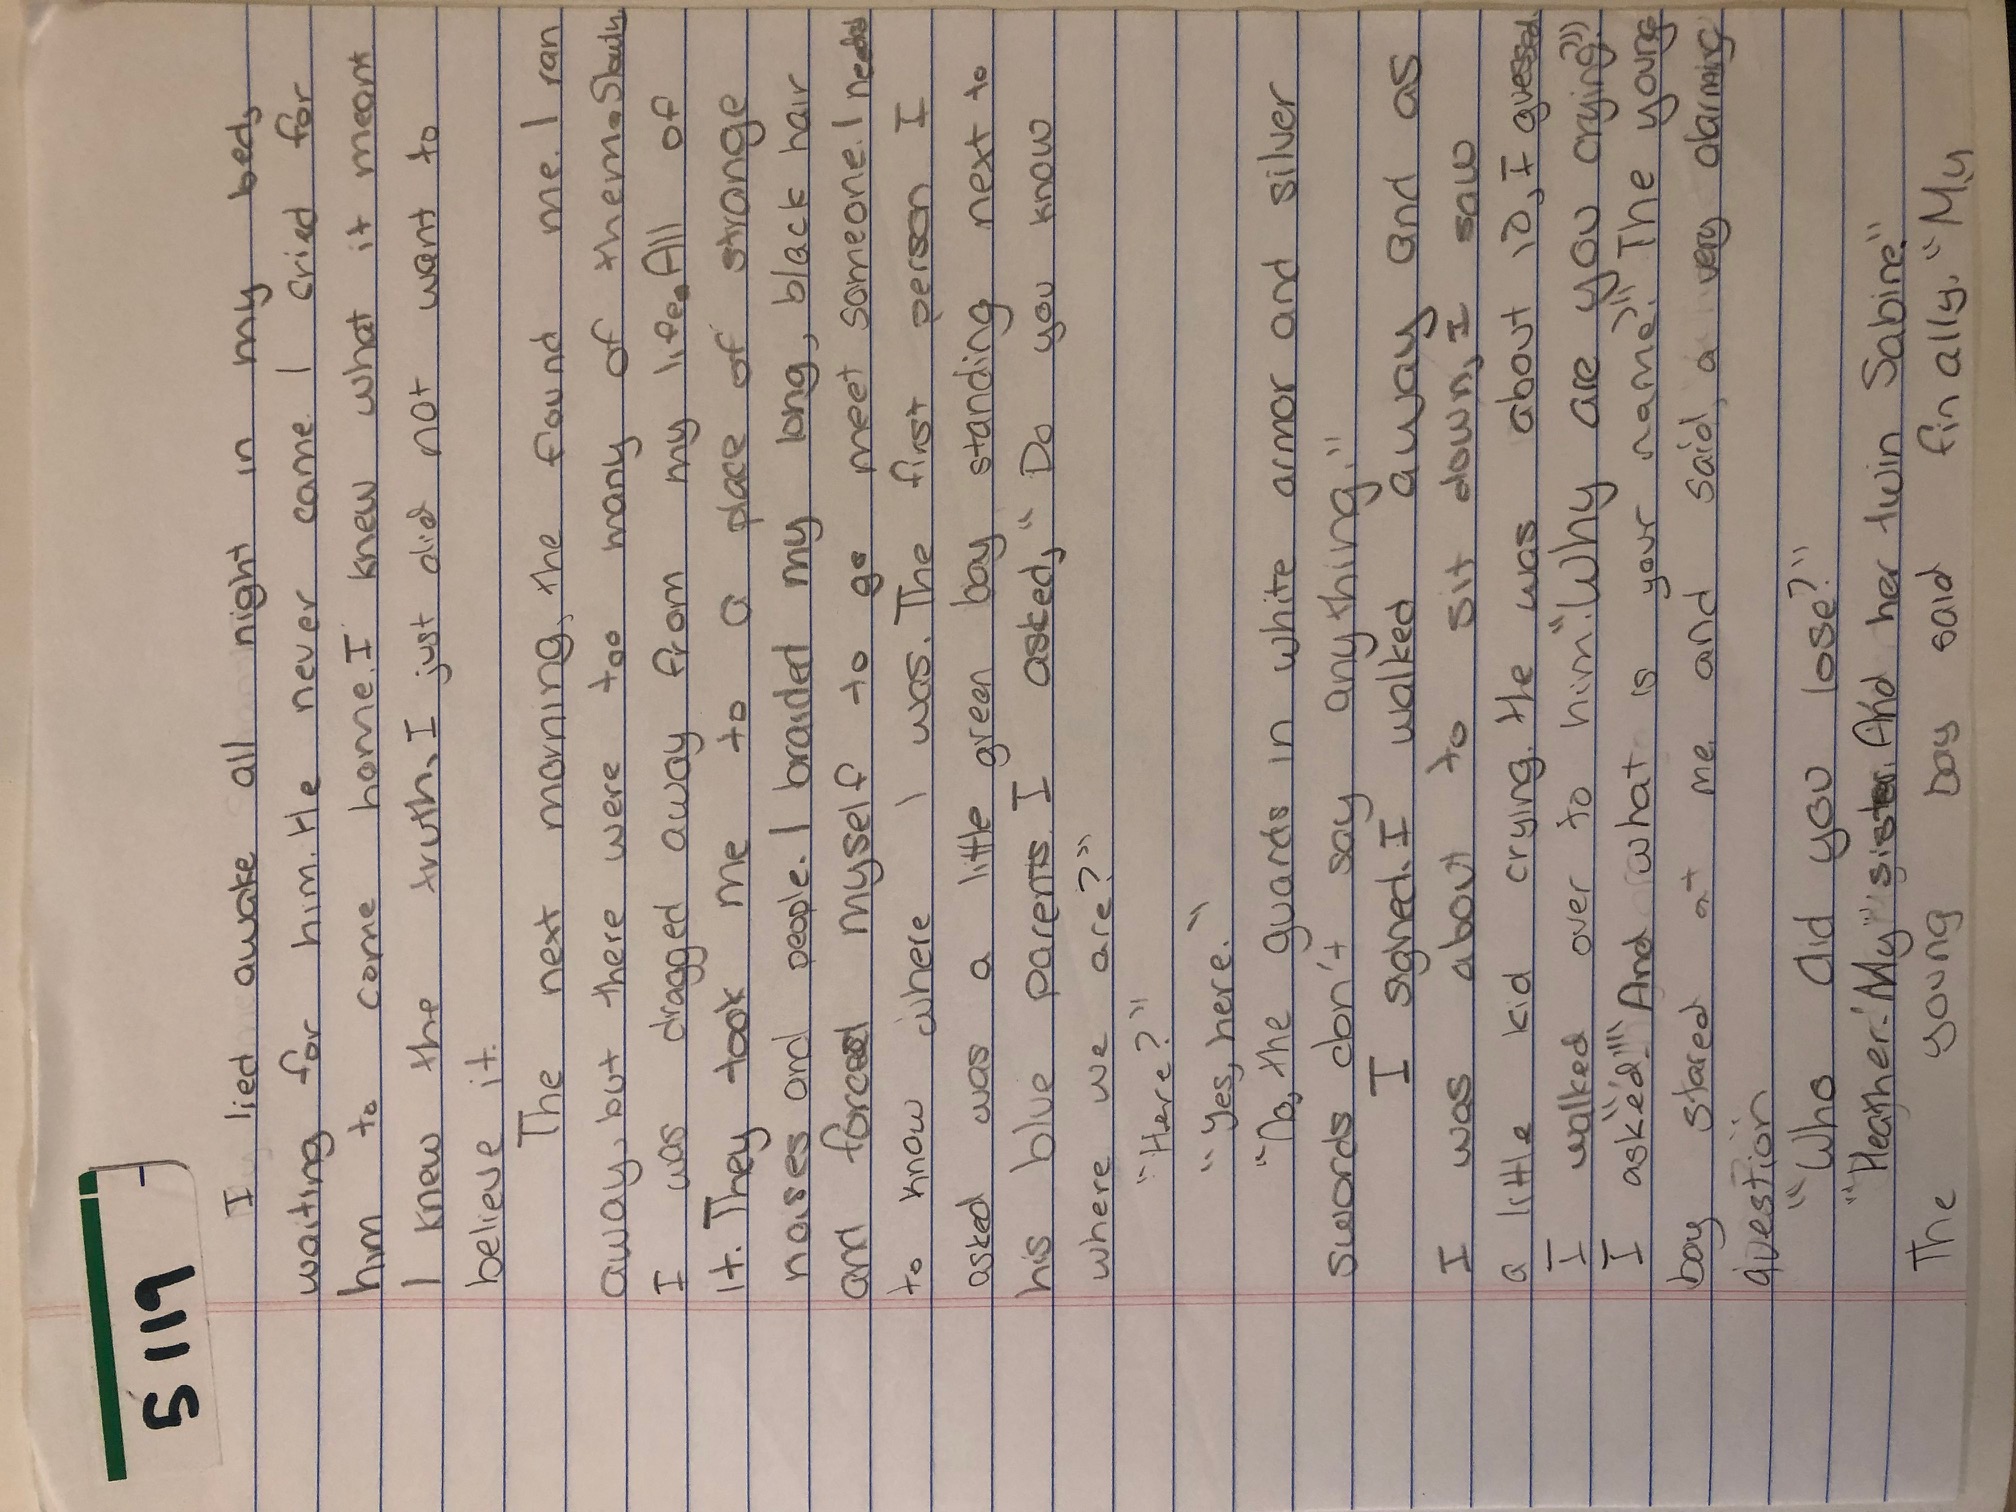 5119
I lied awake all night in my bed,
waiting for him. He never came. I cried for
him to come home. I knew what it meant
I knew the truth, I just did not want to
believe it.
The next morning, the found me. I ran
away, but there were too many of them. Slowly
I was dragged away from my life. All of
it. They took me to a place of strange
noises and people. I braided my long, black hair
and forced myself to go meet someone. I needed
to know where I was. The first person I
asked was a little green boy standing next to
his blue parents. I asked, "Do you know
where we are?"
"Here?"
"Yes, here."
"No, the guards in white armor and silver
swords don't say anything."
I sighed. I walked away and as
I was about to sit down, I saw
a little kid crying. He was about 10, I guessed.
I walked over to him. "Why are you crying?"
I asked. "And what is your name?" The young
boy stared at me and said, a very alarming
question
"Who did you lose?"
"Heather. My sister. And her twin Sabine."
The young boy said finally. "My